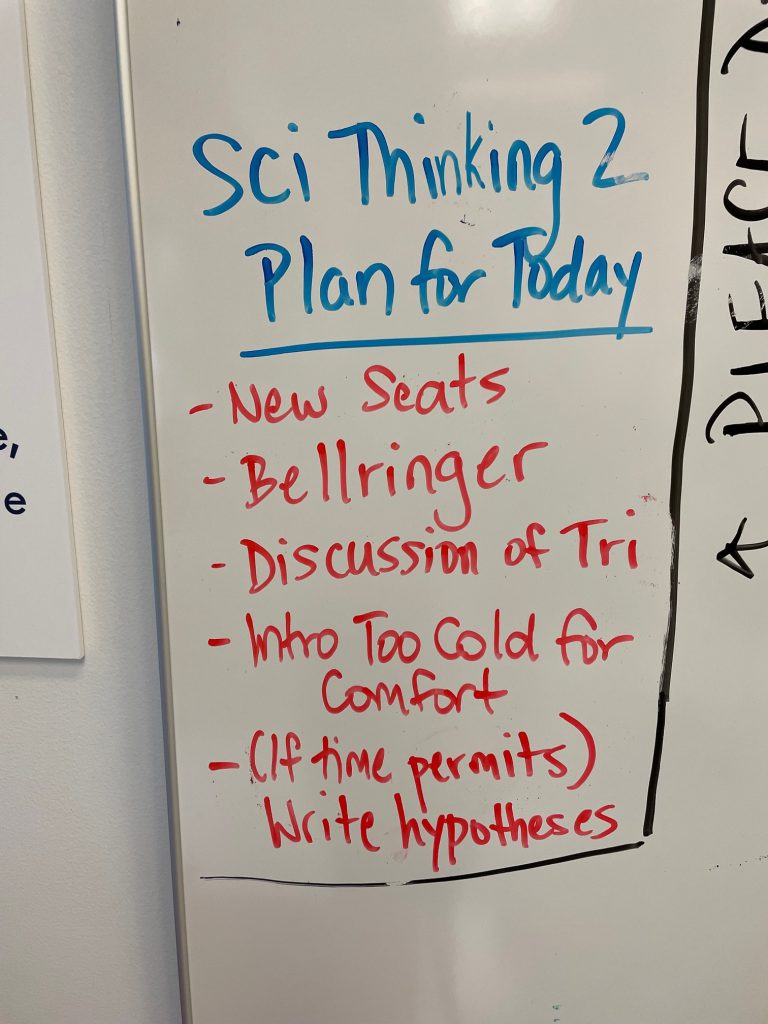 Sci Thinking 2
Plan for Today
- New Seats
- Bellringer
- Discussion of Tri
- Intro Too Cold for
Comfort
- (If time permits)
Write hypotheses
← PLEASE
e,
e